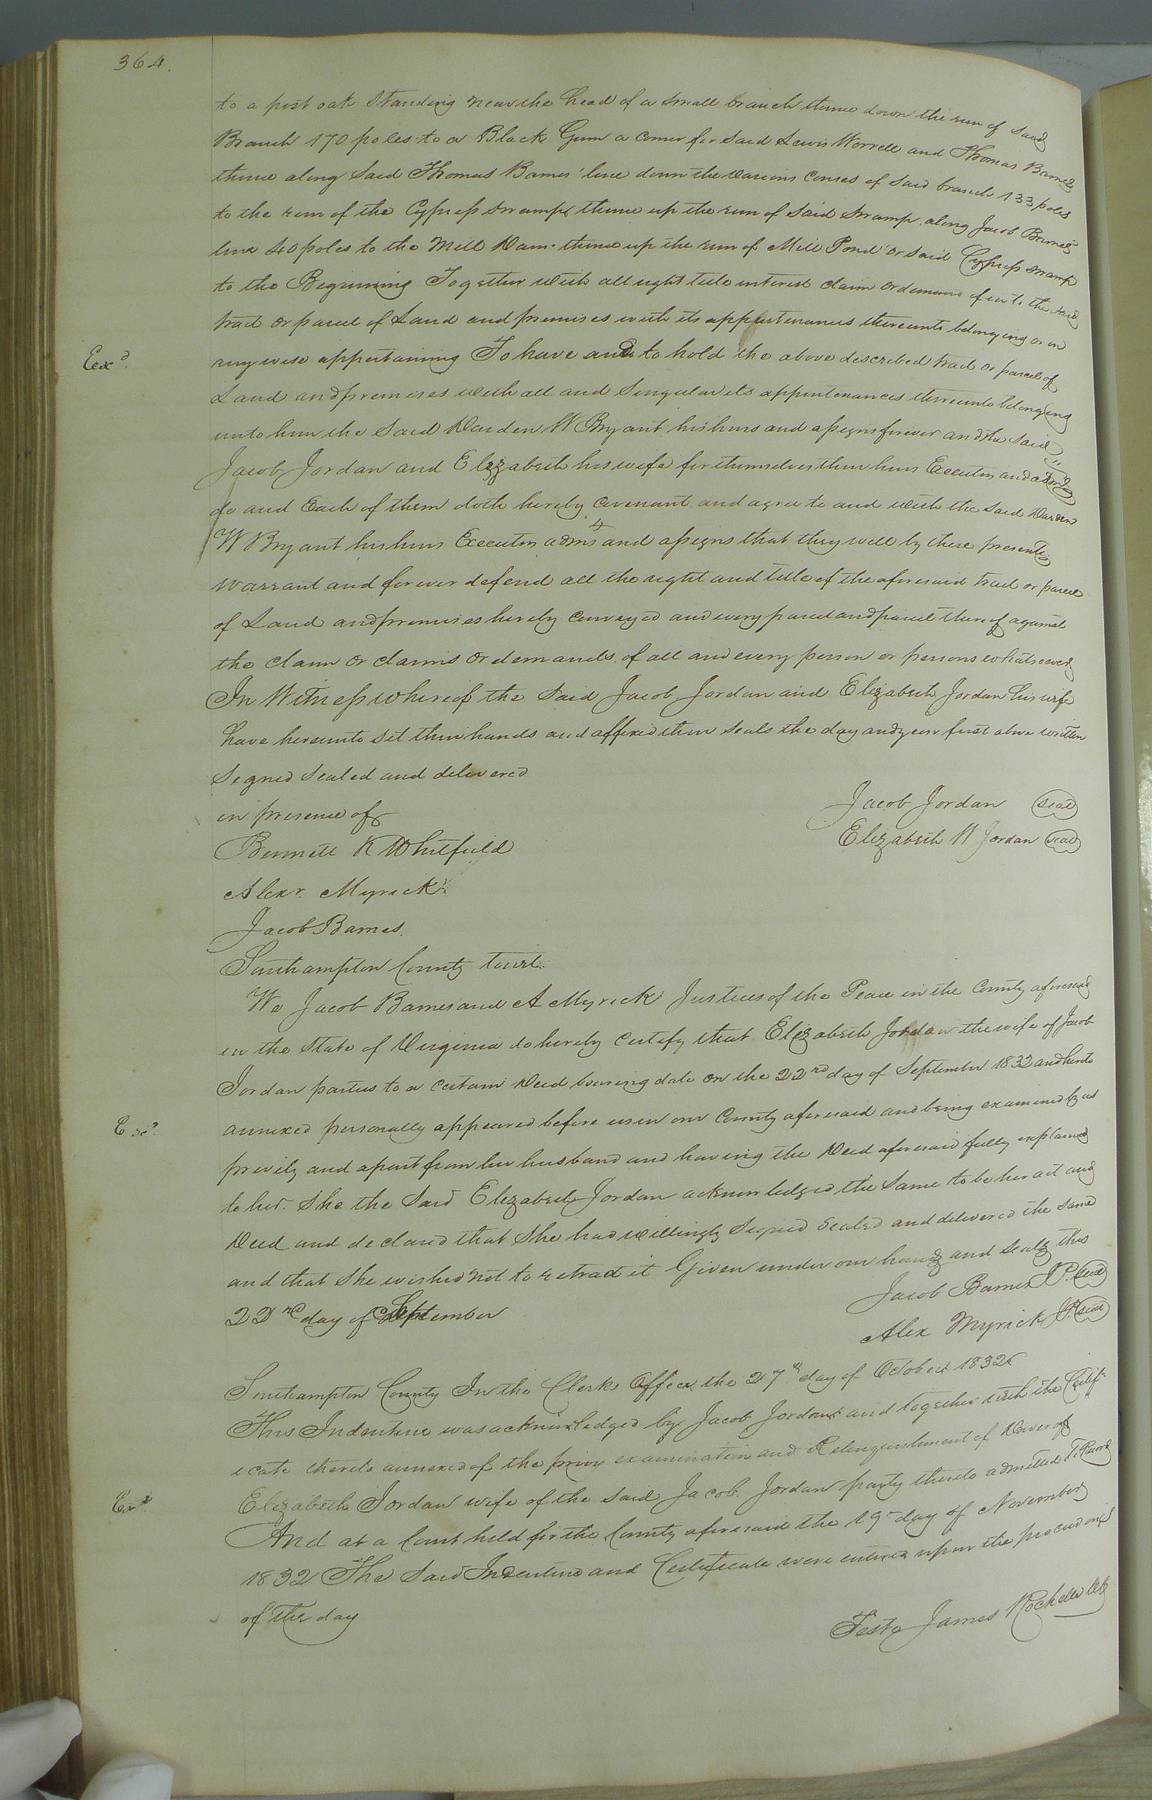 364.
to a post oak Standing near the head of a small branch thence down the run of said
Branch 170 poles to a Black Gum a corner for said Lewis Worrell and Thomas Barnes
thence along Said Thomas Barnes' line down the various courses of said branch 133 poles
to the run of the Cypress swamp, thence up the run of Said Swamp along Jacob Barnes'
line 40 poles to the Mill Dam. thence up the run of Mill Pond or said Cypress swamp
to the Beginning Together with all right title interest claim or demand of in to the said
tract or parcel of Land and premises with its appurtenances thereunto belonging or in
any wise appertaining To have and to hold the above described tract or parcel of
Land and premises with all and Singular its appurtenances thereunto belonging
unto him the Said Darden W Bryant his heirs and assigns forever and the Said
Jacob Jordan and Elizabeth his wife for themselves their heirs Executors and admrs
do and Each of them doth hereby covenant and agree to and with the said Darden
W Bryant his heirs Executors admrs and assigns that they will by these presents
warrant and forever defend all the right and title of the aforesaid tract or parcel
of Land and premises hereby conveyed and every parcel and parcel thereof against
the claim or claims or demands of all and every person or persons whatsoever,
In Witness whereof the Said Jacob Jordan and Elizabeth Jordan his wife
have hereunto set their hands and affixed their seals the day and year first above written
Signed Sealed and delivered
in presence of
Jacob Jordan seal
Bennett K Whitfield
Elizabeth W Jordan seal
Alexr. Myrick
Jacob Barnes.
Southampton County Towit:
We Jacob Barnes and A Myrick Justices of the Peace in the County aforesaid
in the State of Virginia do hereby certify that Elizabeth Jordan the wife of Jacob
Jordan parties to a certain Deed bearing date on the 22nd day of September 1832 and hereto
annexed personally appeared before us in our County aforesaid and being examined by us
privily and apart from her husband and having the Deed aforesaid fully explained
to her. She the Said Elizabeth Jordan acknowledged the Same to be her act and
Deed and declared that She had willingly Signed Sealed and delivered the same
and that She wished not to retract it Given under our hands and seals this
22nd day of September
Jacob Barnes J.P. seal
Alex Myrick JP seal
Southampton County In the Clerks Office the 27th day of October 1832
This Indenture was acknowledged by Jacob Jordan and together with the Certif-
icate thereto annexed of the privy examination and Relinquishment of Dower of
Elizabeth Jordan wife of the Said Jacob Jordan party thereto admitted To Record
And at a Court held for the County aforesaid the 19th day of November
1832 The Said Indenture and Certificate were entered upon the proceedings
of the day
Teste James Rochelle Clk
Exd.
Exd.